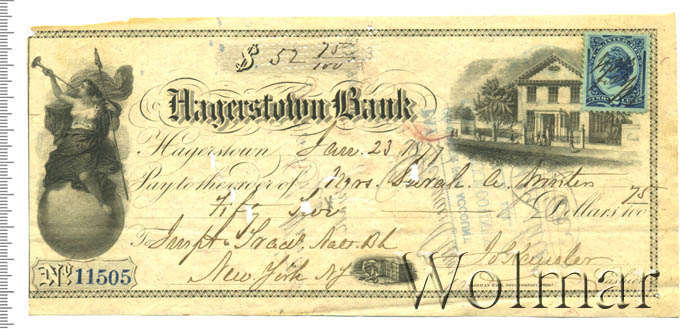 $ 52 75/100
Hagerstown Bank
Hagerstown Jan. 23 1877
Pay to the order of Mrs. Sarah A.
Fifty two Dollars 75/100
To Impt & Trad. Natl. Bk
New York NY
No 11505
Wolmar